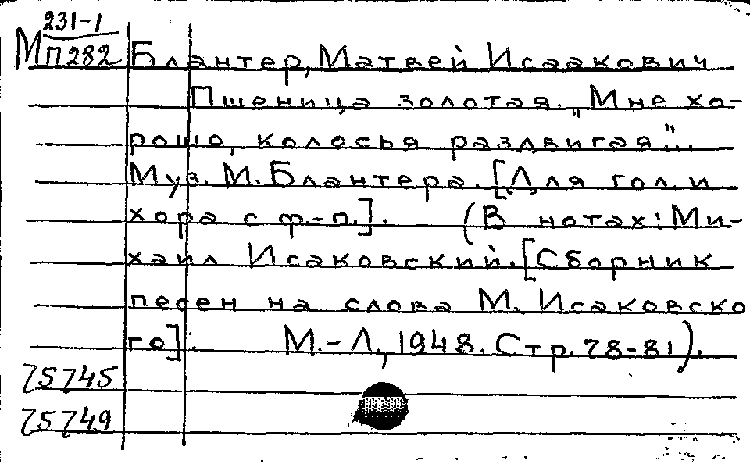 231-1
Мп282 Блантер, Матвей Исаакович
Пшеница золотая. „Мне хо-
рошо, колосья раздвигая"...
Муз. М. Блантера. [Для гол. и
хора с ф.-п.]. (В нотах: Ми-
хаил Исаковский. [Сборник
песен на слова М. Исаковско
го]. М.-Л., 1948. Стр. 78-81).
75745
75749